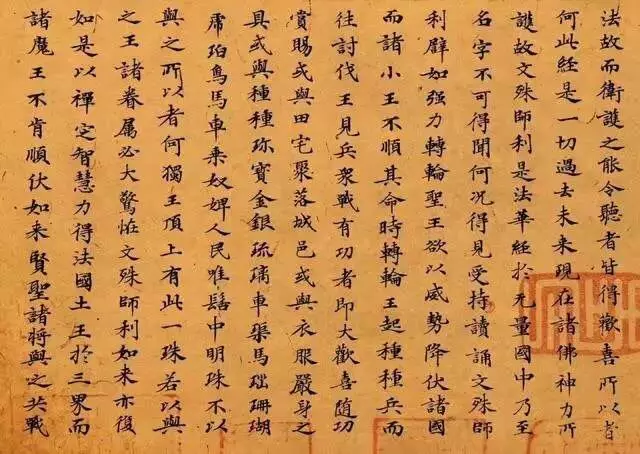 法故而衛護之能令聽者皆得歡喜所以者
何此經是一切過去未来現在諸佛神力所
護故文殊師利是法華經於无量國中乃至
名字不可得聞何況得見受持讀誦文殊師
利辟如强力轉輪聖王欲以威勢降伏諸國
而諸小王不順其命時轉輪王起種種兵而
往討伐王見兵衆戰有功者即大歡喜随功
賞賜或與田宅聚落城邑或與衣服嚴身之
具或與種種珎寶金銀琉璃車𤦲馬瑙珊瑚
虎珀鳥馬車乘奴婢人民唯髻中明珠不以
與之所以者何獨王頂上有此一珠若以與
之王諸眷属必大驚恠文殊師利如来亦復
如是以禪定智慧力得法國土王於三界而
諸魔王不肯順伏如来賢聖諸将與之共戰